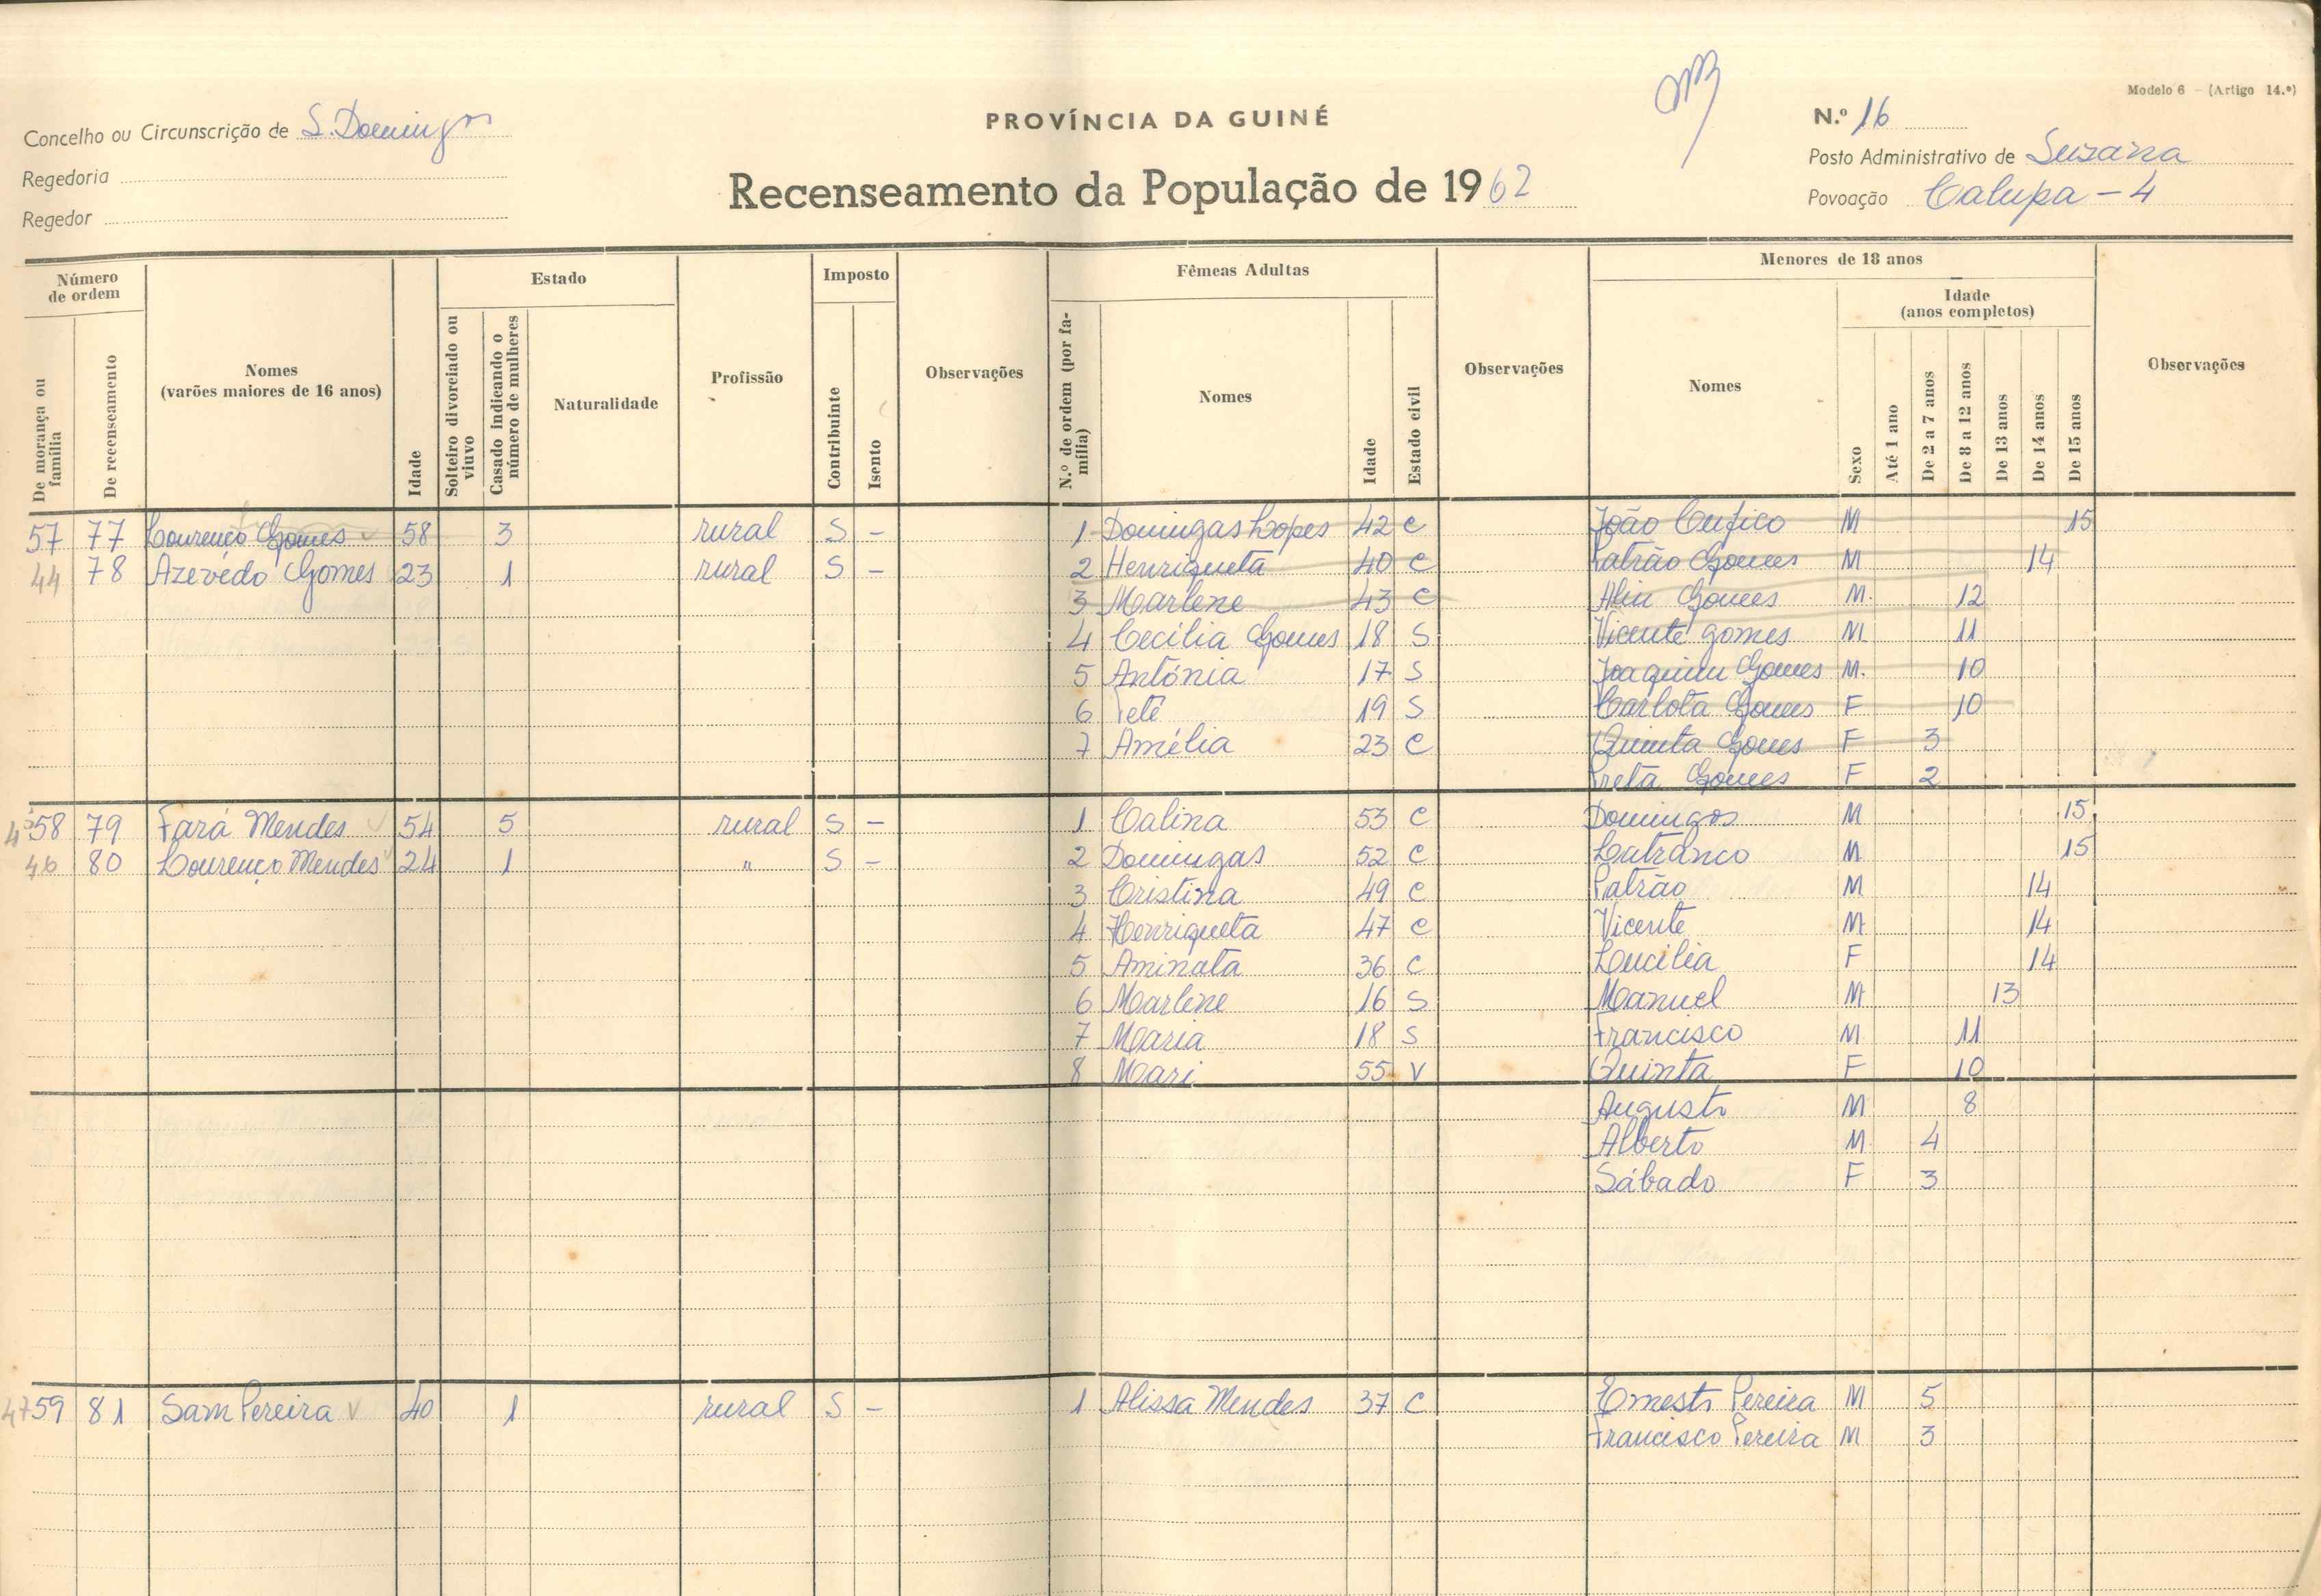 Modelo 6 - (Artigo 14.º)
Concelho ou Circunscrição de S. Domingos
PROVÍNCIA DA GUINÉ
N.º 16
Regedoria
Recenseamento da População de 1962
Posto Administrativo de Suzana
Regedor
Povoação Calupa - 4
Número de ordem
Estado
Imposto
Fêmeas Adultas
Menores de 18 anos
Idade (anos completos)
De morança ou família
De recenseamento
Nomes (varões maiores de 16 anos)
Idade
Solteiro divorciado ou viuvo
Casado indicando o número de mulheres
Naturalidade
Profissão
Contribuinte
Isento
Observações
N.º de ordem (por família)
Nomes
Idade
Estado civil
Observações
Nomes
Sexo
Até 1 ano
De 2 a 7 anos
De 8 a 12 anos
De 13 anos
De 14 anos
De 15 anos
Observações
57 77 Lourenço Gomes 58 3 rural S - 1 Domingas Lopes 42 C João Cufico M 15
44 78 Azevêdo Gomes 23 1 rural S - 2 Henriqueta 40 C Patrão Gomes M 14
3 Marlene 43 C Gomes M. 12
4 Cecília Gomes 18 S Vicente gomes M 11
5 Antónia 17 S Joaquim Gomes M. 10
6 Tetê 19 S Carlota Gomes F 10
7 Amélia 23 C Quinta Gomes F 3
Preta Gomes F 2
58 79 Fará Mendes 54 5 rural S - 1 Calina 53 C Domingos M 15
46 80 Lourenço Mendes 24 1 " S - 2 Domingas 52 C Cutranco M 15
3 Cristina 49 C Patrão M 14
4 Henriqueta 47 C Vicente M 14
5 Aminata 36 C Lucília F 14
6 Marlene 16 S Manuel M 13
7 Maria 18 S Francisco M 11
8 Mari 55 V Quinta F 10
Augusto M 8
Alberto M 4
Sábado F 3
47 59 81 Sam Pereira V 40 1 rural S - 1 Alissa Mendes 37 C Ernesto Pereira M 5
Francisco Pereira M 3